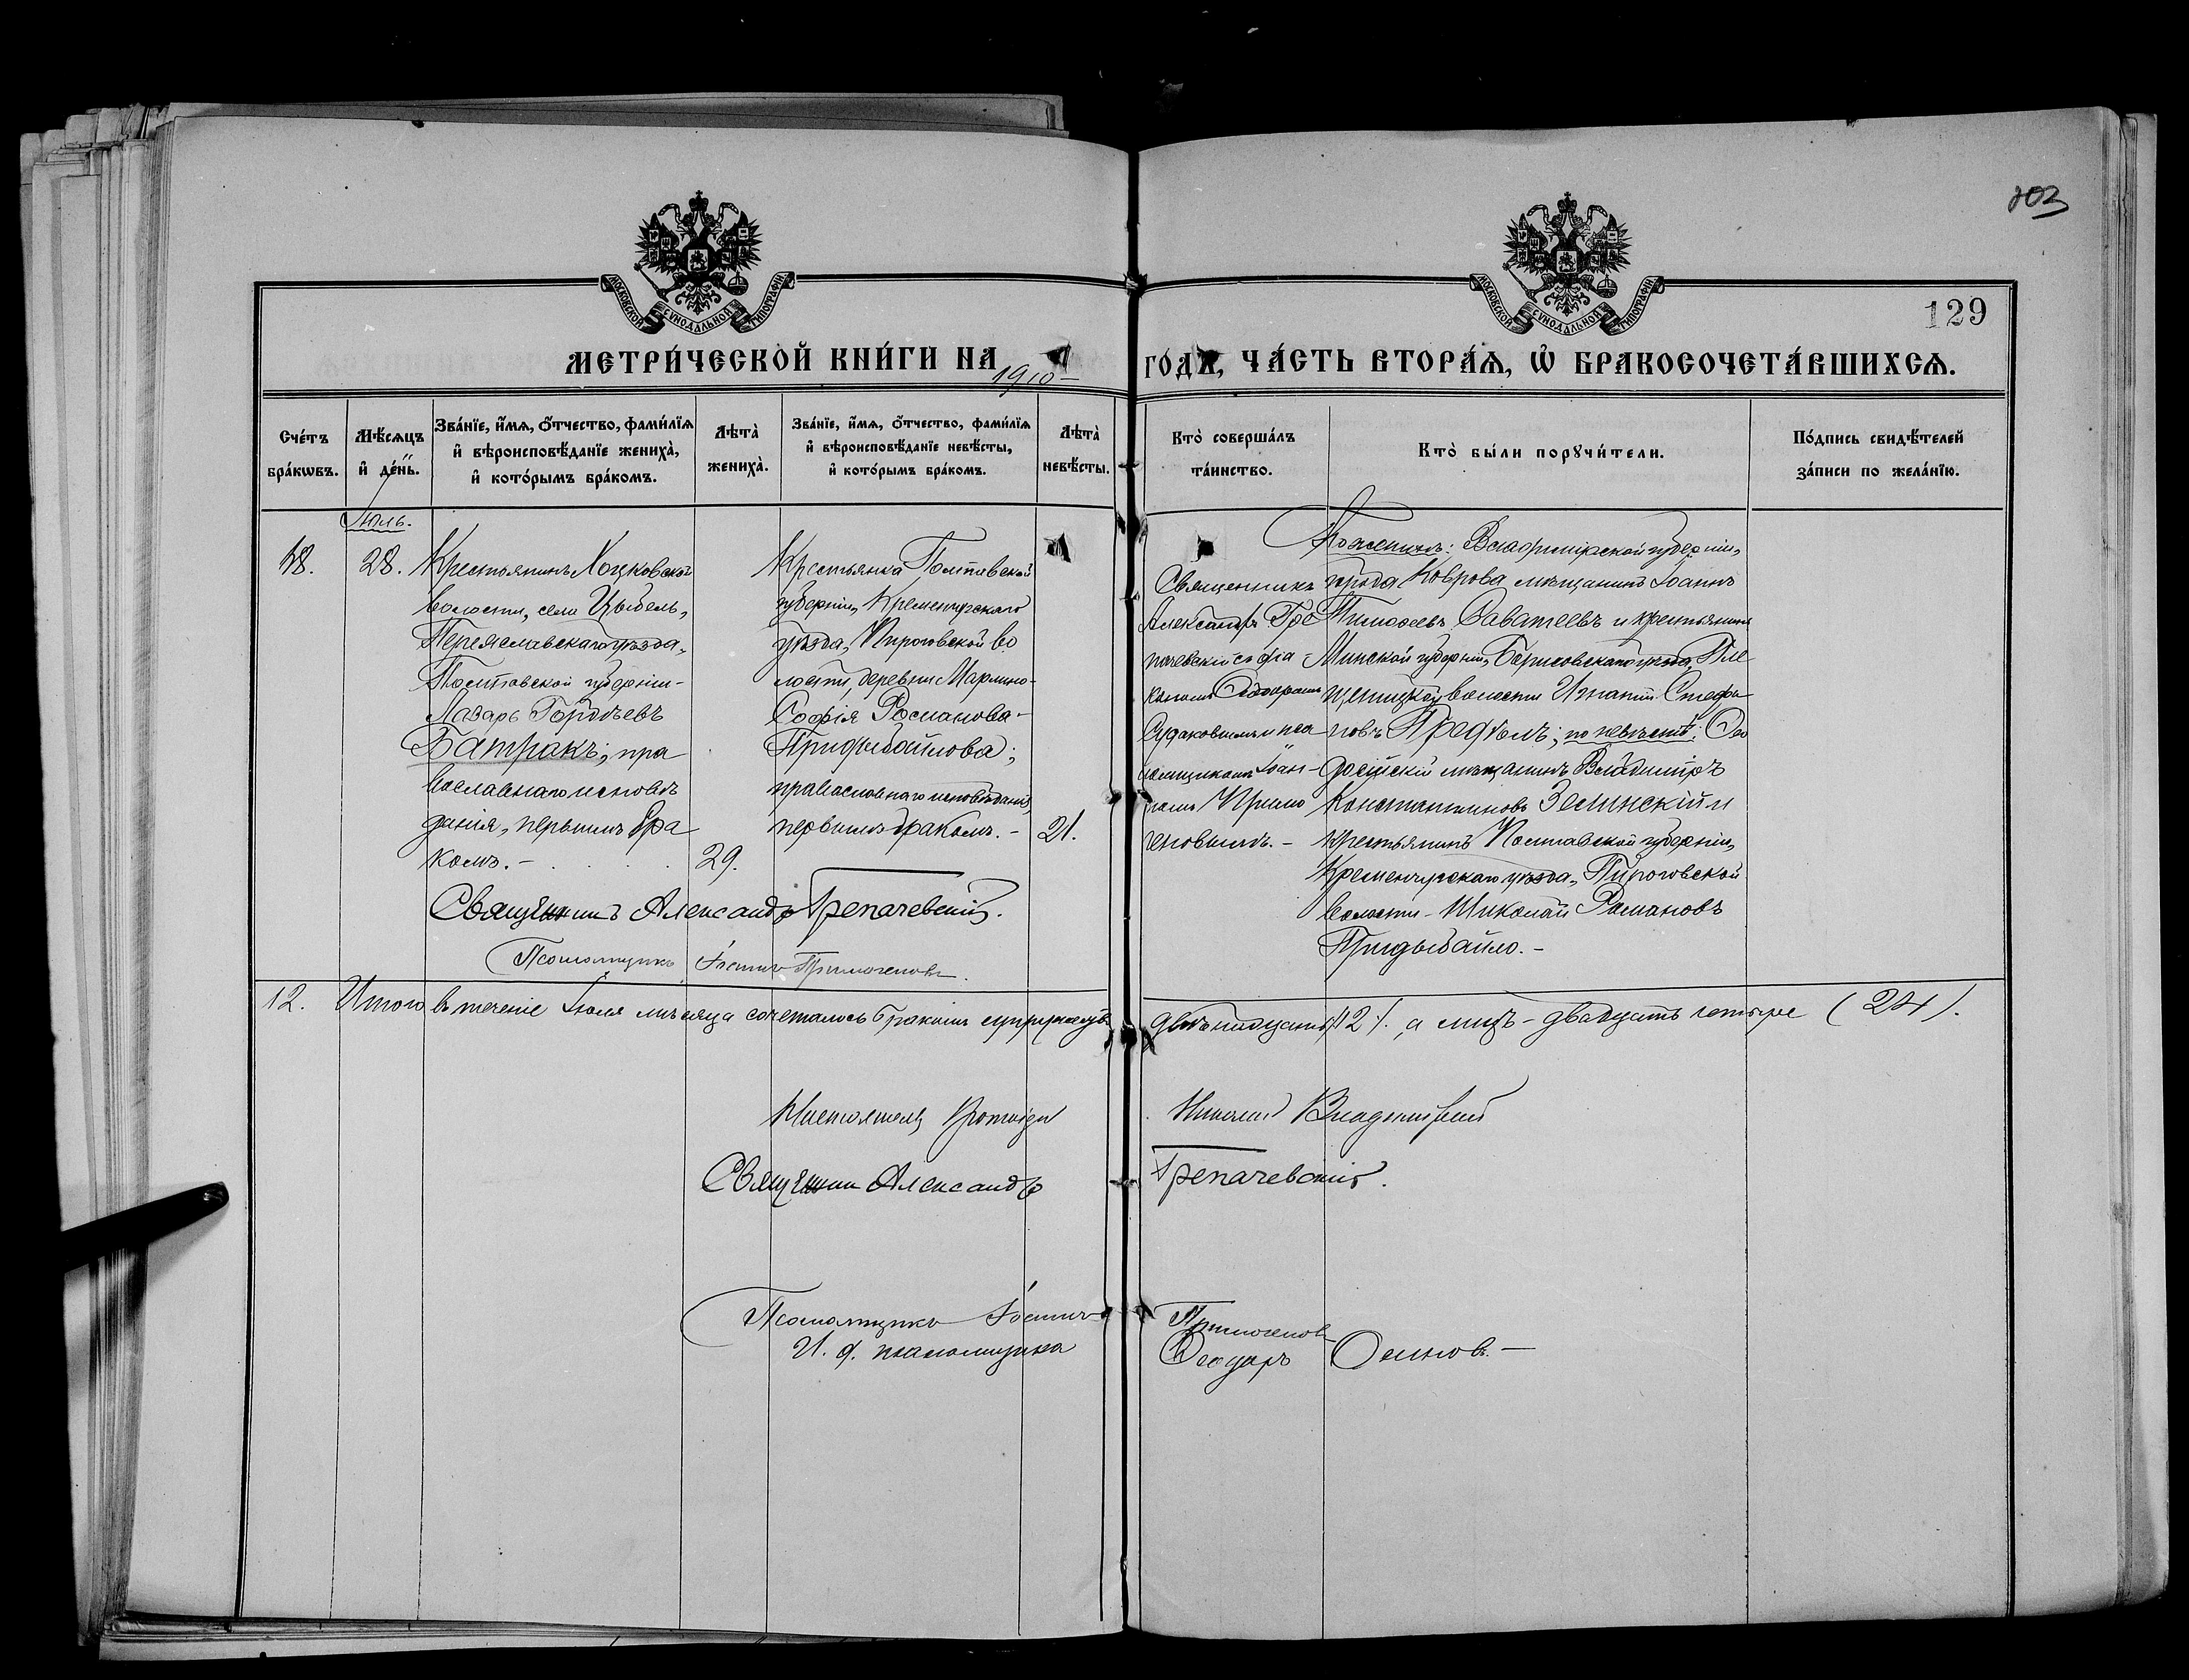 103
129
МОСКОВСКОЙ СѴНОДАЛЬНОЙ ТИПОГРАФІИ
МОСКОВСКОЙ СѴНОДАЛЬНОЙ ТИПОГРАФІИ
МЕТРИ́ЧЕСКОЙ КНИ́ГИ НА 1910
ГОДЪ, ЧА́СТЬ ВТОРА́Ѧ, Ѡ҆ БРАКОСОЧЕТА́ВШИХСѦ.
Сче́тъ
бра́кѡвъ.
Мѣ́сяцъ
и҆ де́нь.
Зва́нїе, и҆́мѧ, о҆́тчество, фами́лїѧ
и҆ вѣроисповѣ́данїе жениха̀,
и҆ кото́рымъ бра́комъ.
Лѣта̀
жениха̀.
Зва́нїе, и҆́мѧ, о҆́тчество, фами́лїѧ
и҆ вѣроисповѣ́данїе невѣ́сты,
и҆ кото́рымъ бра́комъ.
Лѣта̀
невѣ́сты.
Кто̀ соверша́лъ
та́инство.
Кто̀ бы́ли порꙋчи́тели.
По́дпись свидѣ́телей
за́писи по жела́нїю.
Іюль.
18.
28.
Крестьянинъ Хоцковской
волости, села Цыбель,
Переяславскаго уѣзда,
Полтавской губерніи-
Лазарь Гордѣевъ
Батракъ; пра
вославнаго исповѣ
данія, первымъ бра
комъ.-
29.
Крестьянка Полтавской
губерніи, Кременчугскаго
уѣзда, Пироговской во
лости, деревни
Софія Романова-
Придыбайлова;
православнаго исповѣданія,
первымъ бракомъ.-
21.
Священникъ
Александръ Гре
пачевскій съ діа
кономъ Ѳеодоромъ
Судаковымъ и пса
ломщикомъ Іоан-
номъ Примо
геновымъ.-
По женихѣ: Владимірской губерніи,
города Коврова мѣщанинъ Іоаннъ
Тимоѳеевъ Саватеевъ и крестьянинъ
Минской губерніи, Борисовскаго уѣзда, Пле
щеницкой волости Игнатій Стефа
новъ; по невѣстѣ: Ѳео
досійскій мѣщанинъ Владиміръ
Константиновъ Зелинскій и
крестьянинъ Полтавской губерніи,
Кременчугскаго уѣзда, Пироговской
волости-Николай Романовъ
Придыбайло.-
Священникъ Александръ Грепачевскій.
Псаломщикъ Іоаннъ Примогеновъ.
12. Итого въ теченіе Іюля мѣсяца сочеталось бракомъ
двѣнадцать (12), а лицъ-двадцать четыре (24).
Настоятель Протоіерей Николай Владимірскій
Священникъ Александръ Грепачевскій.
Псаломщикъ Іоаннъ Примогеновъ
И. д. псаломщика Ѳеодоръ Осиповъ.-